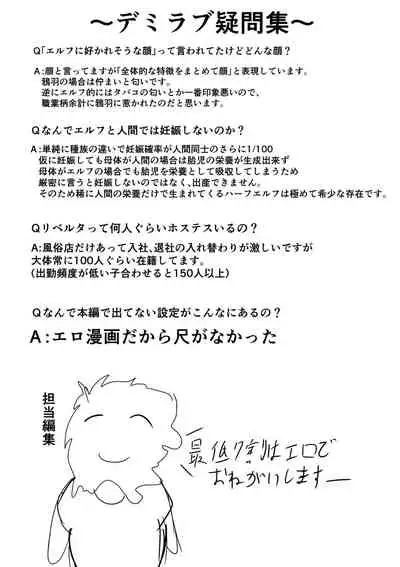 ～デミラブ疑問集～
Q「エルフに好かれそうな顔」って言われてたけどどんな顔？
A：顔と言ってますが「全体的な特徴をまとめて顔」と表現しています。
鴉羽の場合は佇まいと匂いです。
逆にエルフ的にはタバコの匂いとか一番印象悪いので、
職業柄余計に鴉羽に惹かれたのだと思います。
Qなんでエルフと人間では妊娠しないのか？
A：単純に種族の違いで妊娠確率が人間同士のさらに1/100
仮に妊娠しても母体が人間の場合は胎児の栄養が生成出来ず
母体がエルフの場合でも胎児を栄養として吸収してしまうため
厳密に言うと妊娠しないのではなく、出産できません。
そのため稀に人間の栄養だけで生まれてくるハーフエルフは極めて希少な存在です。
Qリベルタって何人ぐらいホステスいるの？
A：風俗店だけあって入社、退社の入れ替わりが激しいですが
大体常に100人ぐらい在籍してます。
（出勤頻度が低い子合わせると150人以上）
Qなんで本編で出てない設定がこんなにあるの？
A：エロ漫画だから尺がなかった
担当編集
最低7割はエロで
おねがいしますー